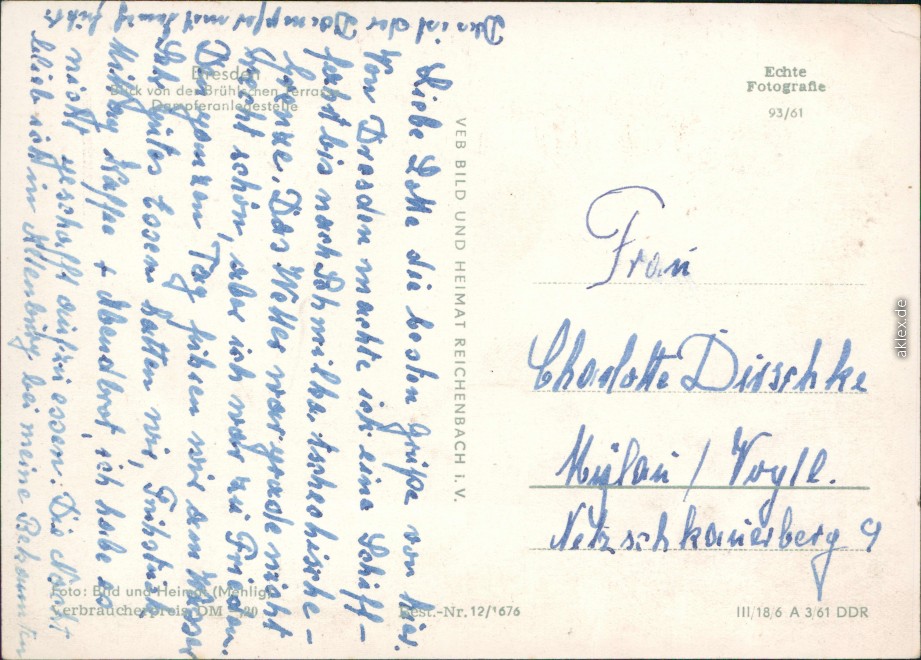 Das ist der Dampfer mit
Liebe Lotte die besten Grüße von hier.
Von Dresden machte ich eine Schiff-
fahrt bis nach Schmilka tschechische-
Grenze. Das Wetter war grade nicht
Recht schön, aber ich war zu Frieden.
Den ganzen Tag fuhren wir am Wasser
Sehr gutes Essen hatten wir, Frühstück
Mittag Kaffe + Abendbrot, ich habe es
nicht geschafft aufzu essen. Die Nacht
blieb ich in Altenburg bei meine Bekannten
Dresden
Blick von der Brühlschen Terrasse
Dampferanlegestelle
VEB BILD UND HEIMAT REICHENBACH i. V.
Echte
Fotografie
93/61
Frau
Charlotte Dirschke
Mylau / Vogtl.
Netzschkauerberg 9
Foto: Bild und Heimat (Mehlig)
Verbraucherpreis DM -,20
Best.-Nr. 12/1676
III/18/6 A 3/61 DDR
akiex.de